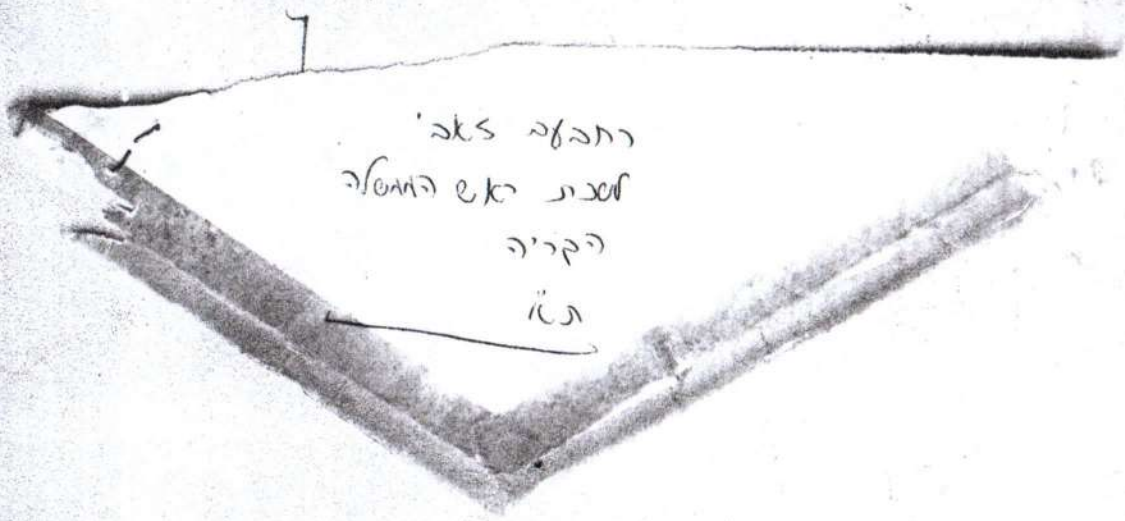 רחבעם זאבי
לשכת ראש הממשלה
הקריה
ת"א